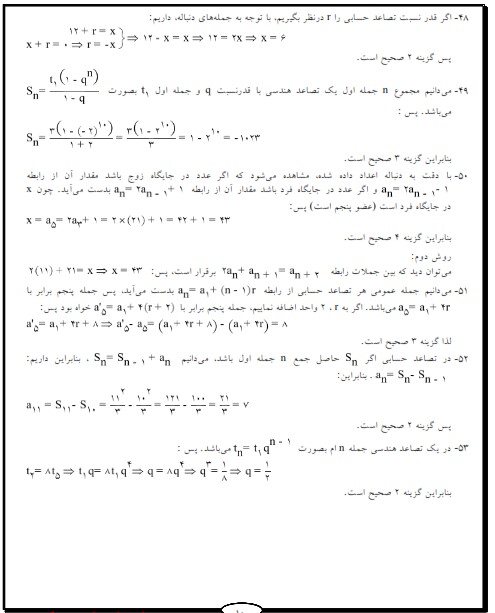 ۴۸- اگر قدر نسبت تصاعد حسابی را r درنظر بگیریم، با توجه به جمله‌های دنباله، داریم:
۱۲ + r = x
x + r = ۰ ⇒ r = -x } ⇒ ۱۲ - x = x ⇒ ۱۲ = ۲x ⇒ x = ۶
پس گزینه ۲ صحیح است.
۴۹- می‌دانیم مجموع n جمله اول یک تصاعد هندسی با قدرنسبت q و جمله اول t₁ بصورت Sₙ = t₁(۱ - qⁿ) / (۱ - q)
می‌باشد. پس :
Sₙ = ۳(۱ - (-۲)^۱۰) / (۱ + ۲) = ۳(۱ - ۲^۱۰) / ۳ = ۱ - ۲^۱۰ = -۱۰۲۳
بنابراین گزینه ۳ صحیح است.
۵۰- با دقت به دنباله اعداد داده شده، مشاهده می‌شود که اگر عدد در جایگاه زوج باشد مقدار آن از رابطه
aₙ = ۲aₙ₋₁ - ۱ و اگر عدد در جایگاه فرد باشد مقدار آن از رابطه aₙ = ۲aₙ₋₁ + ۱ بدست می‌آید. چون x
در جایگاه فرد است (عضو پنجم است) پس:
x = a₅ = ۲a₄ + ۱ = ۲ × (۲۱) + ۱ = ۴۲ + ۱ = ۴۳
بنابراین گزینه ۴ صحیح است.
روش دوم:
می‌توان دید که بین جملات رابطه ۲aₙ + aₙ₊₁ = aₙ₊₂ برقرار است، پس: ۲(۱۱) + ۲۱ = x ⇒ x = ۴۳
۵۱- می‌دانیم جمله عمومی هر تصاعد حسابی از رابطه aₙ = a₁ + (n - ۱)r بدست می‌آید، پس جمله پنجم برابر با
a₅ = a₁ + ۴r می‌باشد. اگر به r ، ۲ واحد اضافه نماییم، جمله پنجم برابر با a'₅ = a₁ + ۴(r + ۲) خواه بود پس:
a'₅ = a₁ + ۴r + ۸ ⇒ a'₅ - a₅ = (a₁ + ۴r + ۸) - (a₁ + ۴r) = ۸
لذا گزینه ۳ صحیح است.
۵۲- در تصاعد حسابی اگر Sₙ حاصل جمع n جمله اول باشد، می‌دانیم Sₙ = Sₙ₋₁ + aₙ ، بنابراین داریم:
aₙ = Sₙ - Sₙ₋₁ . بنابراین:
a₁₁ = S₁₁ - S₁₀ = ۱۱²/۳ - ۱۰²/۳ = ۱۲۱/۳ - ۱۰۰/۳ = ۲۱/۳ = ۷
پس گزینه ۲ صحیح است.
۵۳- در یک تصاعد هندسی جمله n ام بصورت tₙ = t₁qⁿ⁻¹ می‌باشد، پس :
t₂ = ۸t₅ ⇒ t₁q = ۸t₁q⁴ ⇒ q = ۸q⁴ ⇒ q³ = ۱/۸ ⇒ q = ۱/۲
بنابراین گزینه ۲ صحیح است.